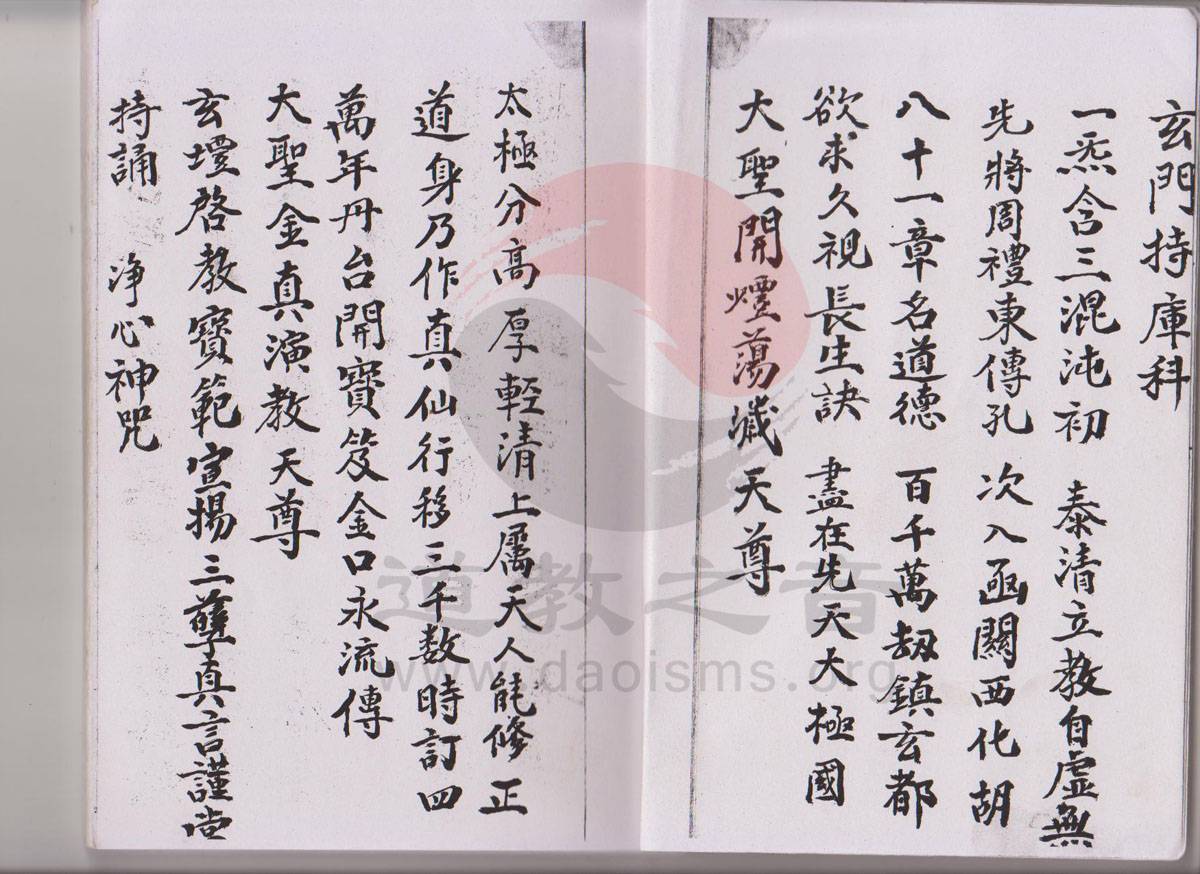 玄門持庫科
一炁含三混沌初 泰清立教自虛無
先將周禮東傳孔 次入函關西化胡
八十一章名道德 百千萬劫鎮玄都
欲求久視長生訣 盡在先天大極國
大聖開壇蕩濊天尊
太極分高厚輕清上屬天人能修正
道身乃作真仙行移三千数時訂四
萬年丹台開寶笈金口永流傳
大聖金真演教天尊
玄壇啓教寶範宣揚三孽真言謹當
持誦 净心神咒
道教之音
www.daoisms.org